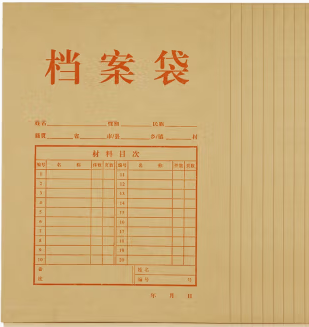 档案袋
姓名 性别 民族
籍贯 省 市/县 乡/镇 村
材料目次
编号 名 称 份数 页数 编号 名 称 份数 页数
1 11
2 12
3 13
4 14
5 15
6 16
7 17
8 18
9 19
10 20
姓名
编号 号
年 月 日